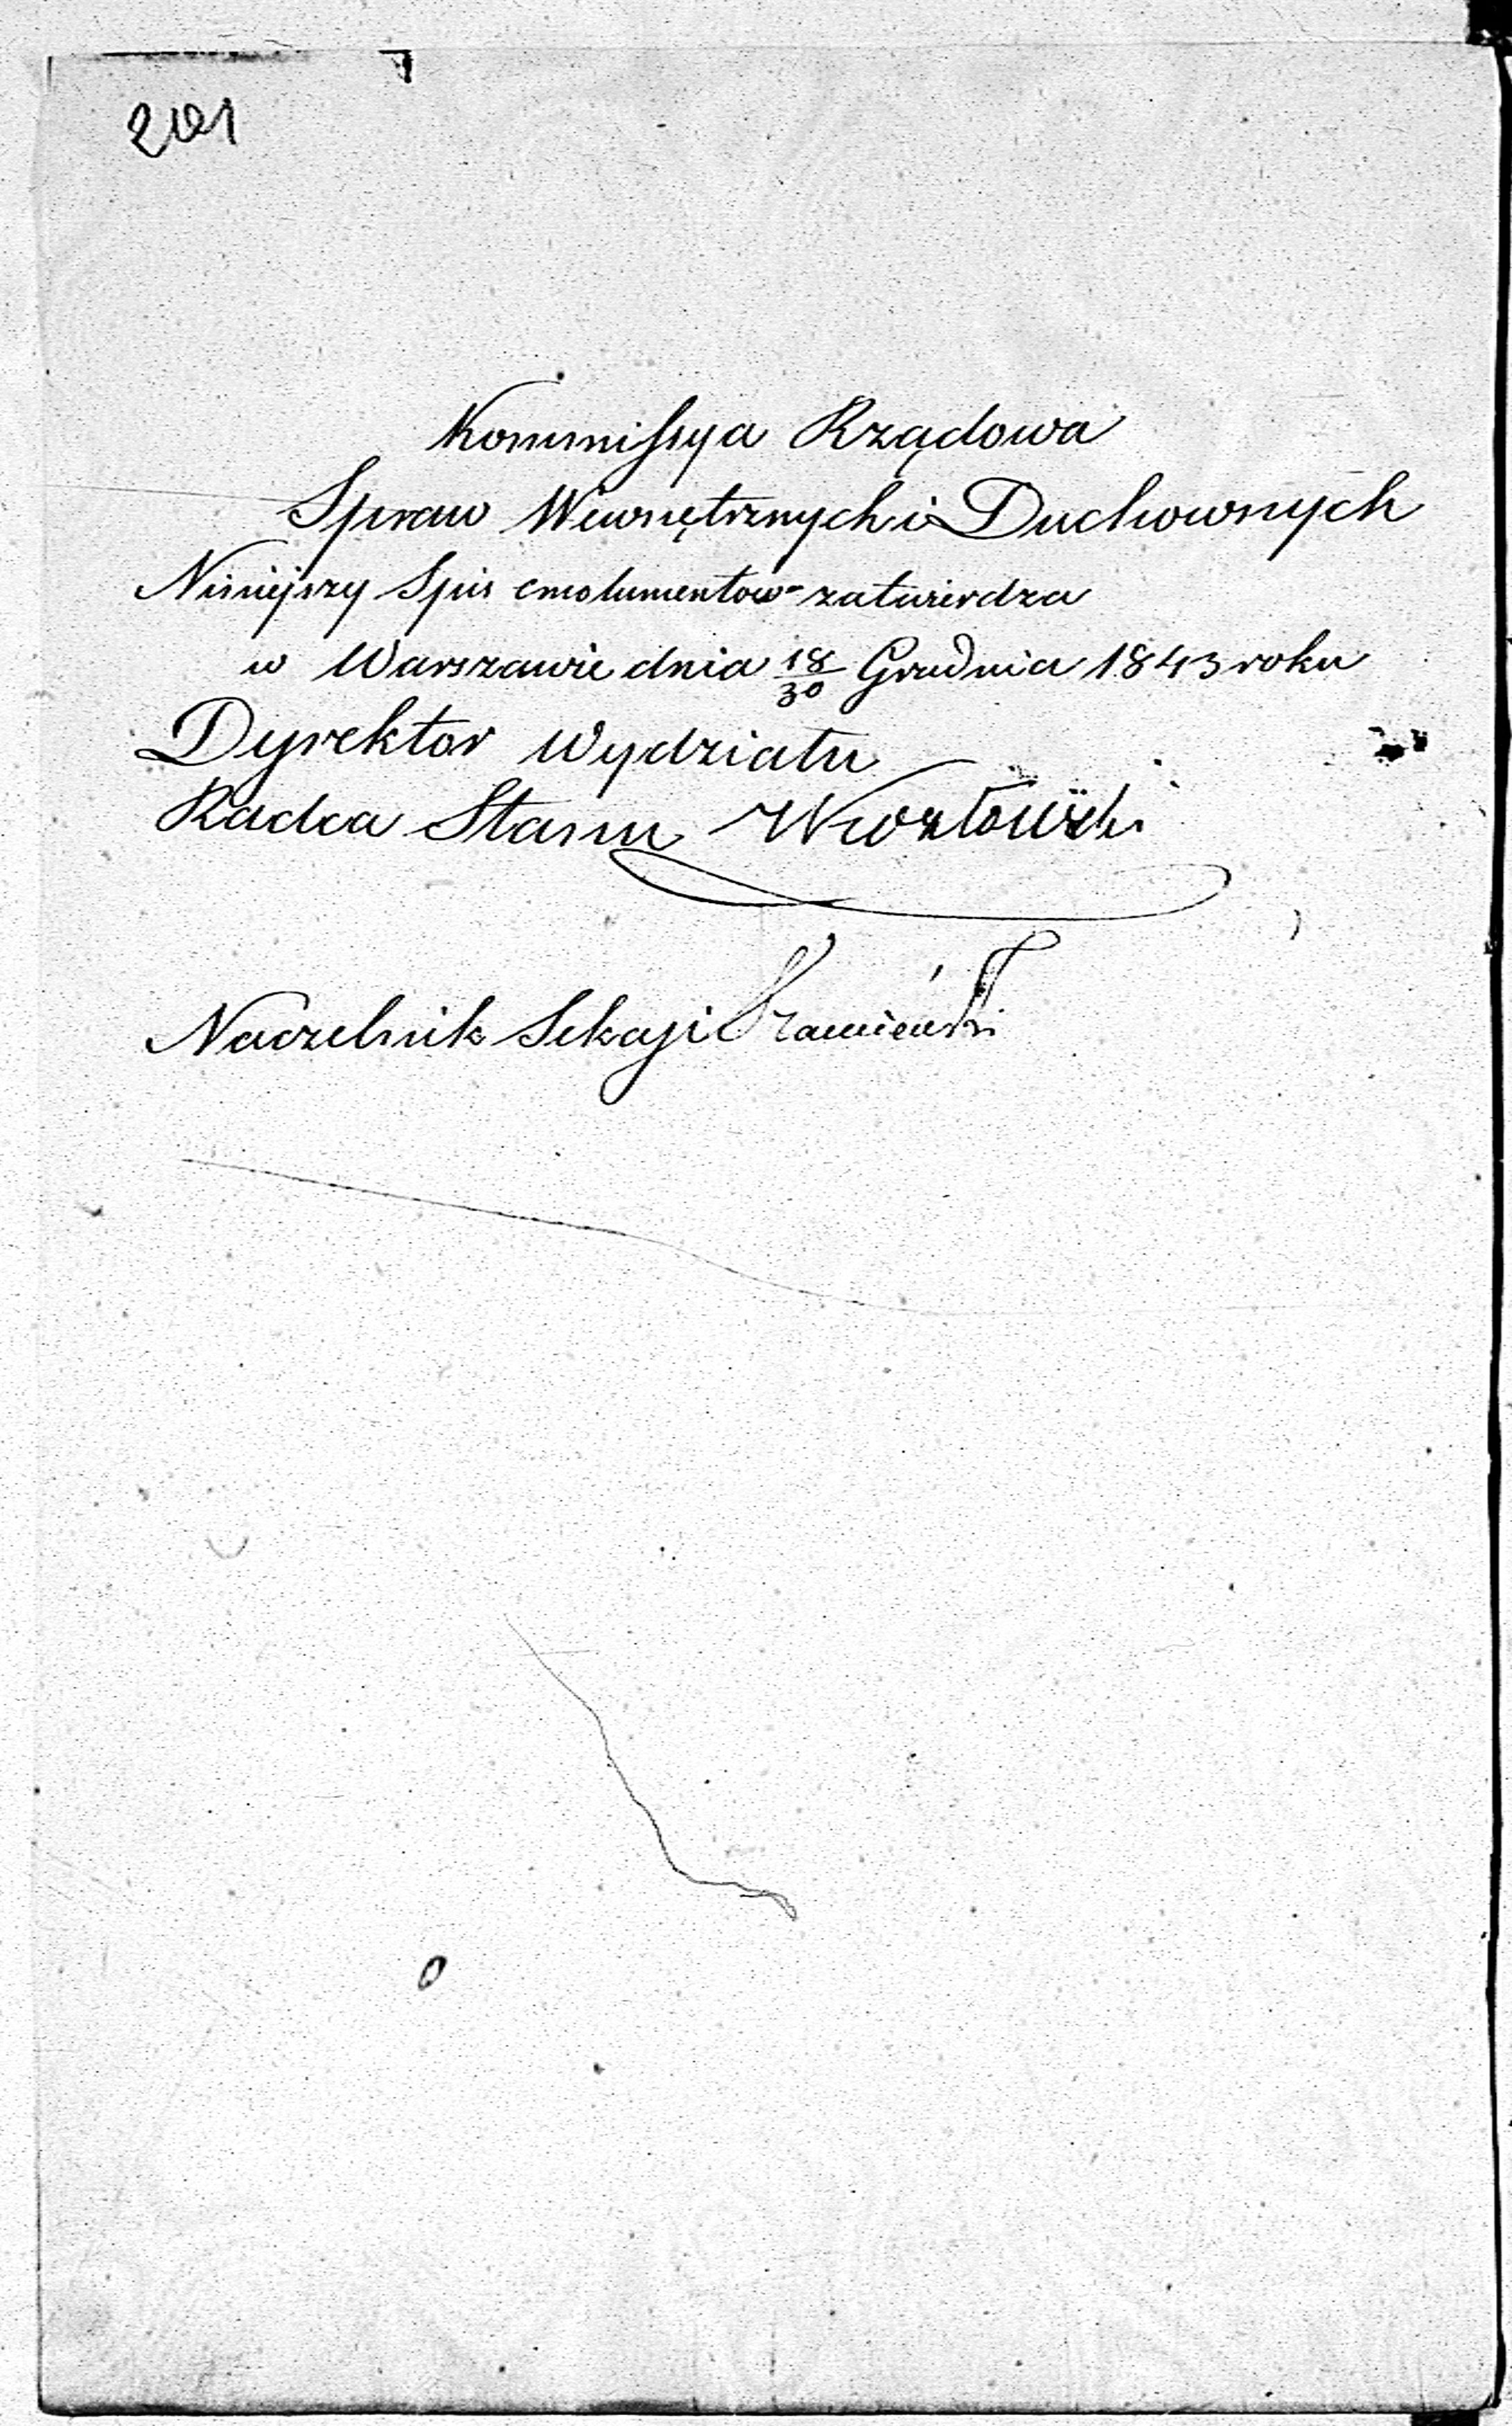 201
Kommissya Rządowa
Spraw Wewnętrznych i Duchownych
Niniejszy Spis emolumentow zatwierdza
w Warszawie dnia 18/30 Grudnia 1843 roku
Dyrektor Wydziału
Radca Stanu Kozłowski
Naczelnik Sekcyi